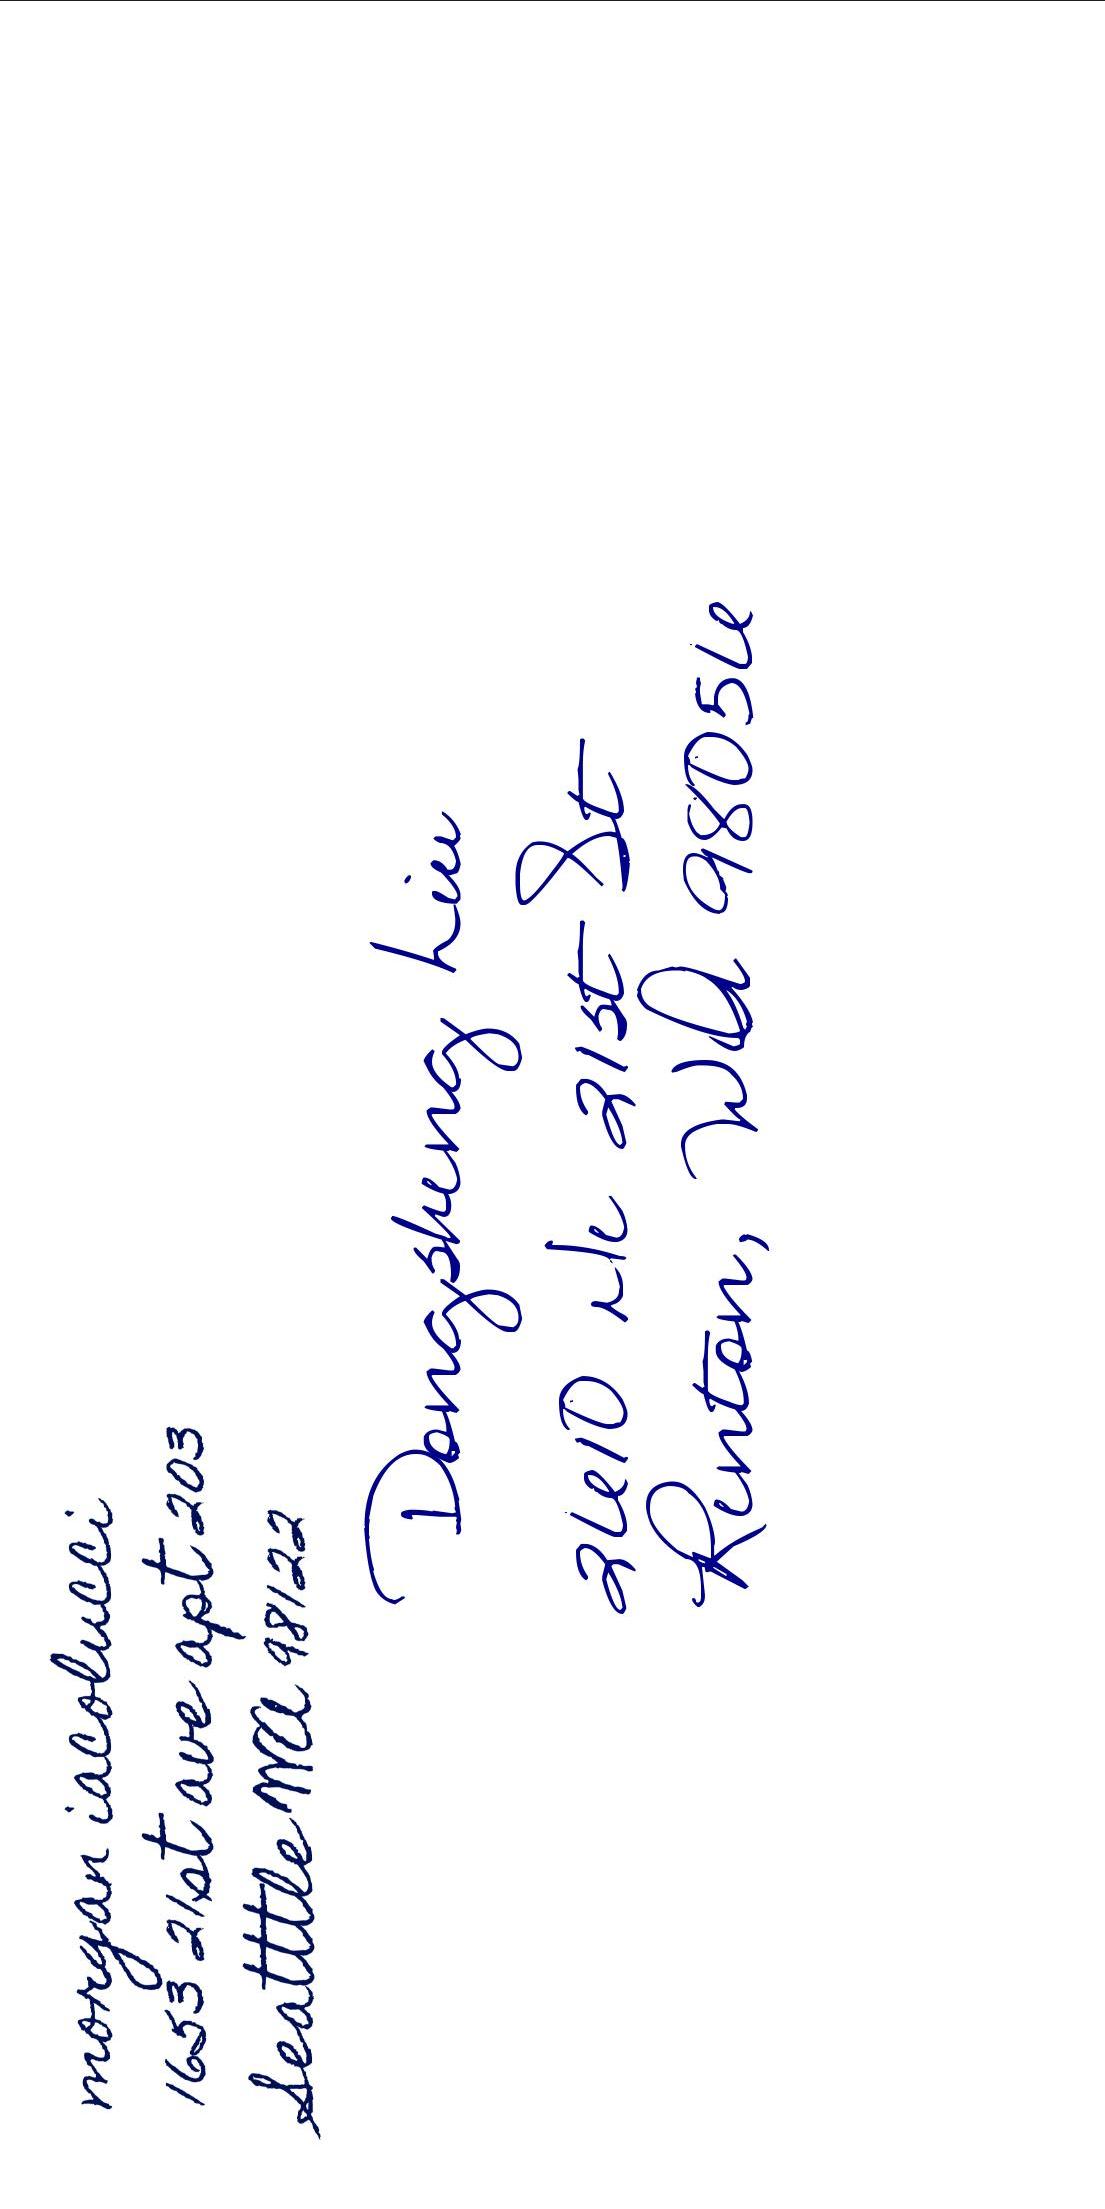 morgan iacolucci
1653 21st ave apt 203
Seattle WA 98122
Dongsheng Liu
2610 Ne 21st St
Renton, WA 98056